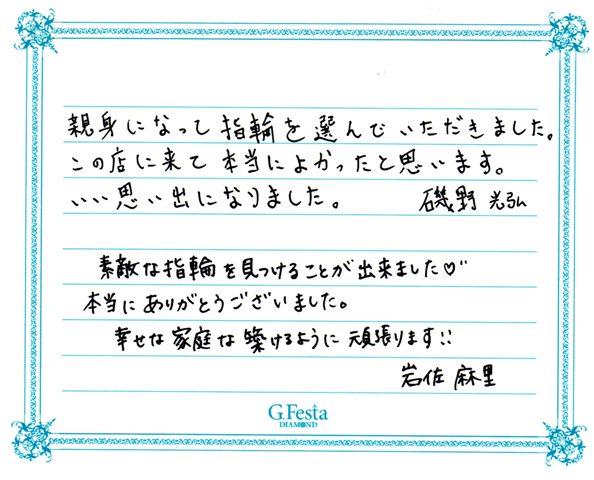 親身になって指輪を選んでいただきました。
この店に来て本当によかったと思います。
いい思い出になりました。 磯野 光弘
素敵な指輪を見つけることが出来ました♡"
本当にありがとうございました。
幸せな家庭な築けるように頑張ります!!
岩佐 麻里
G.Festa
DIAMOND